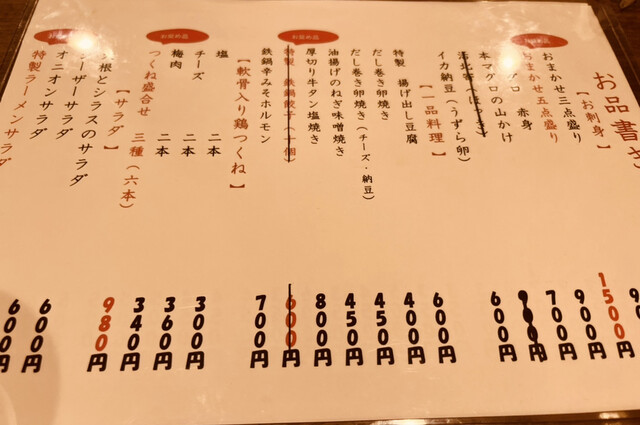 お品書き
【お刺身】
おまかせ三点盛り
おまかせ五点盛り 1500円
グロ 赤身 900円
本マグロの山かけ 700円
北寄(ほっき) 900円
イカ納豆(うずら卵) 600円
【一品料理】
特製 揚げ出し豆腐 600円
だし巻き卵焼き 400円
だし巻き卵焼き(チーズ・納豆) 450円
油揚げのねぎ味噌焼き 450円
お奨め品
厚切り牛タン塩焼き 800円
特製 鉄鍋餃子(十個) 600円
鉄鍋辛みそホルモン 700円
【軟骨入り鶏つくね】
塩 二本 300円
チーズ 二本 360円
梅肉 二本 340円
お奨め品
つくね盛合せ 三種(六本) 980円
【サラダ】
根とシラスのサラダ 600円
ーザーサラダ 600円
オニオンサラダ
特製ラーメンサラダ